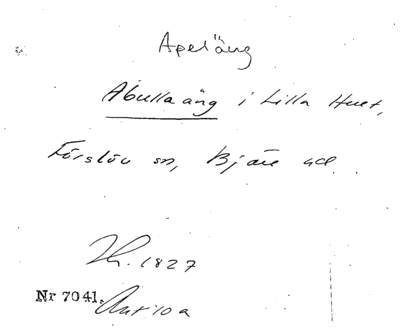 Apeläng
Abullaäng i Lilla Hult,
Förslöv sn, Bjäre hd.
1827
Nr 7041.